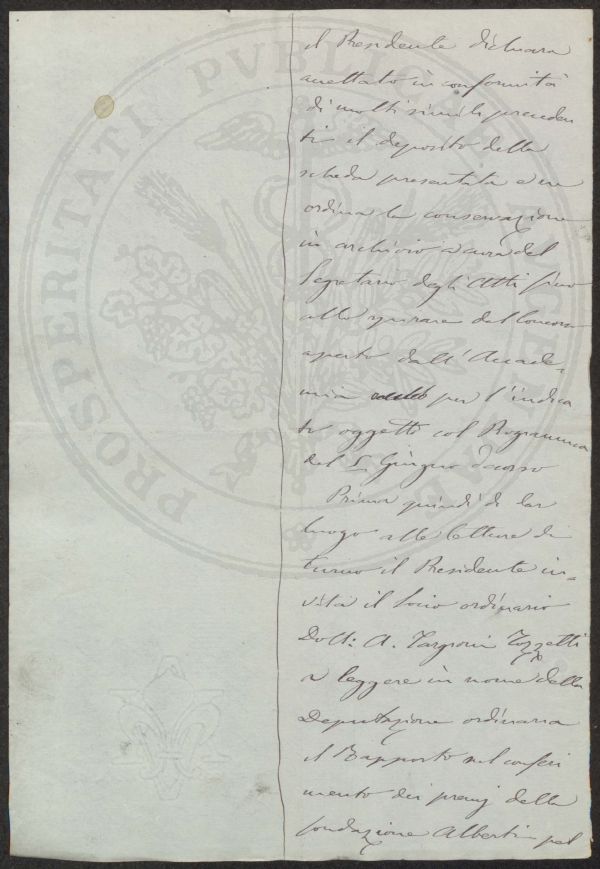 il Presidente dichiara
accettato in conformità
di molti simili preceden
ti il deposito della
scheda presentata e ne
ordina la conservazione
in archivio a cura del
Segretario degli Atti fino
allo spirare del Concorso
aperto dall'Accade-
mia per l'indica
to oggetto col Programma
del 5 Giugno decorso
Prima quindi di dar
luogo alle letture di
turno il Presidente in-
vita il Socio ordinario
Dott: A. Targioni Tozzetti
a leggere in nome della
Deputazione ordinaria
il Rapporto sul conferi
mento dei premj della
fondazione Alberti pel
PROSPERITATI PVBLICAE AVGENDAE